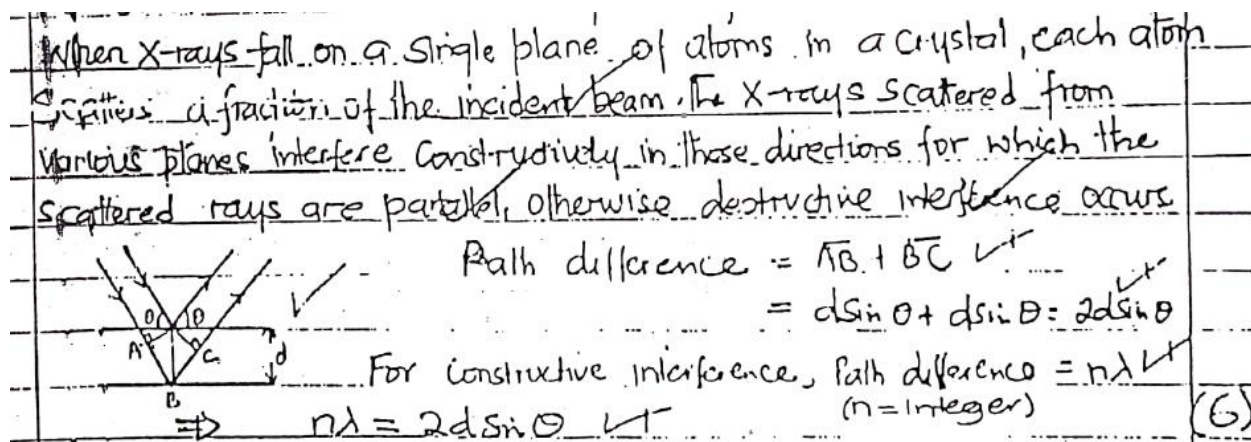 When X-rays fall on a single plane of atoms in a crystal, each atom
scatters a fraction of the incident beam. The X-rays scattered from
various planes interfere constructively in those directions for which the
scattered rays are parallel, otherwise destructive interference occurs
Path difference = AB + BC
θ θ = dsin θ + dsin θ = 2dsin θ
A C d
For constructive interference, Path difference = nλ
B (n = integer)
⇒ nλ = 2d Sin θ (6)